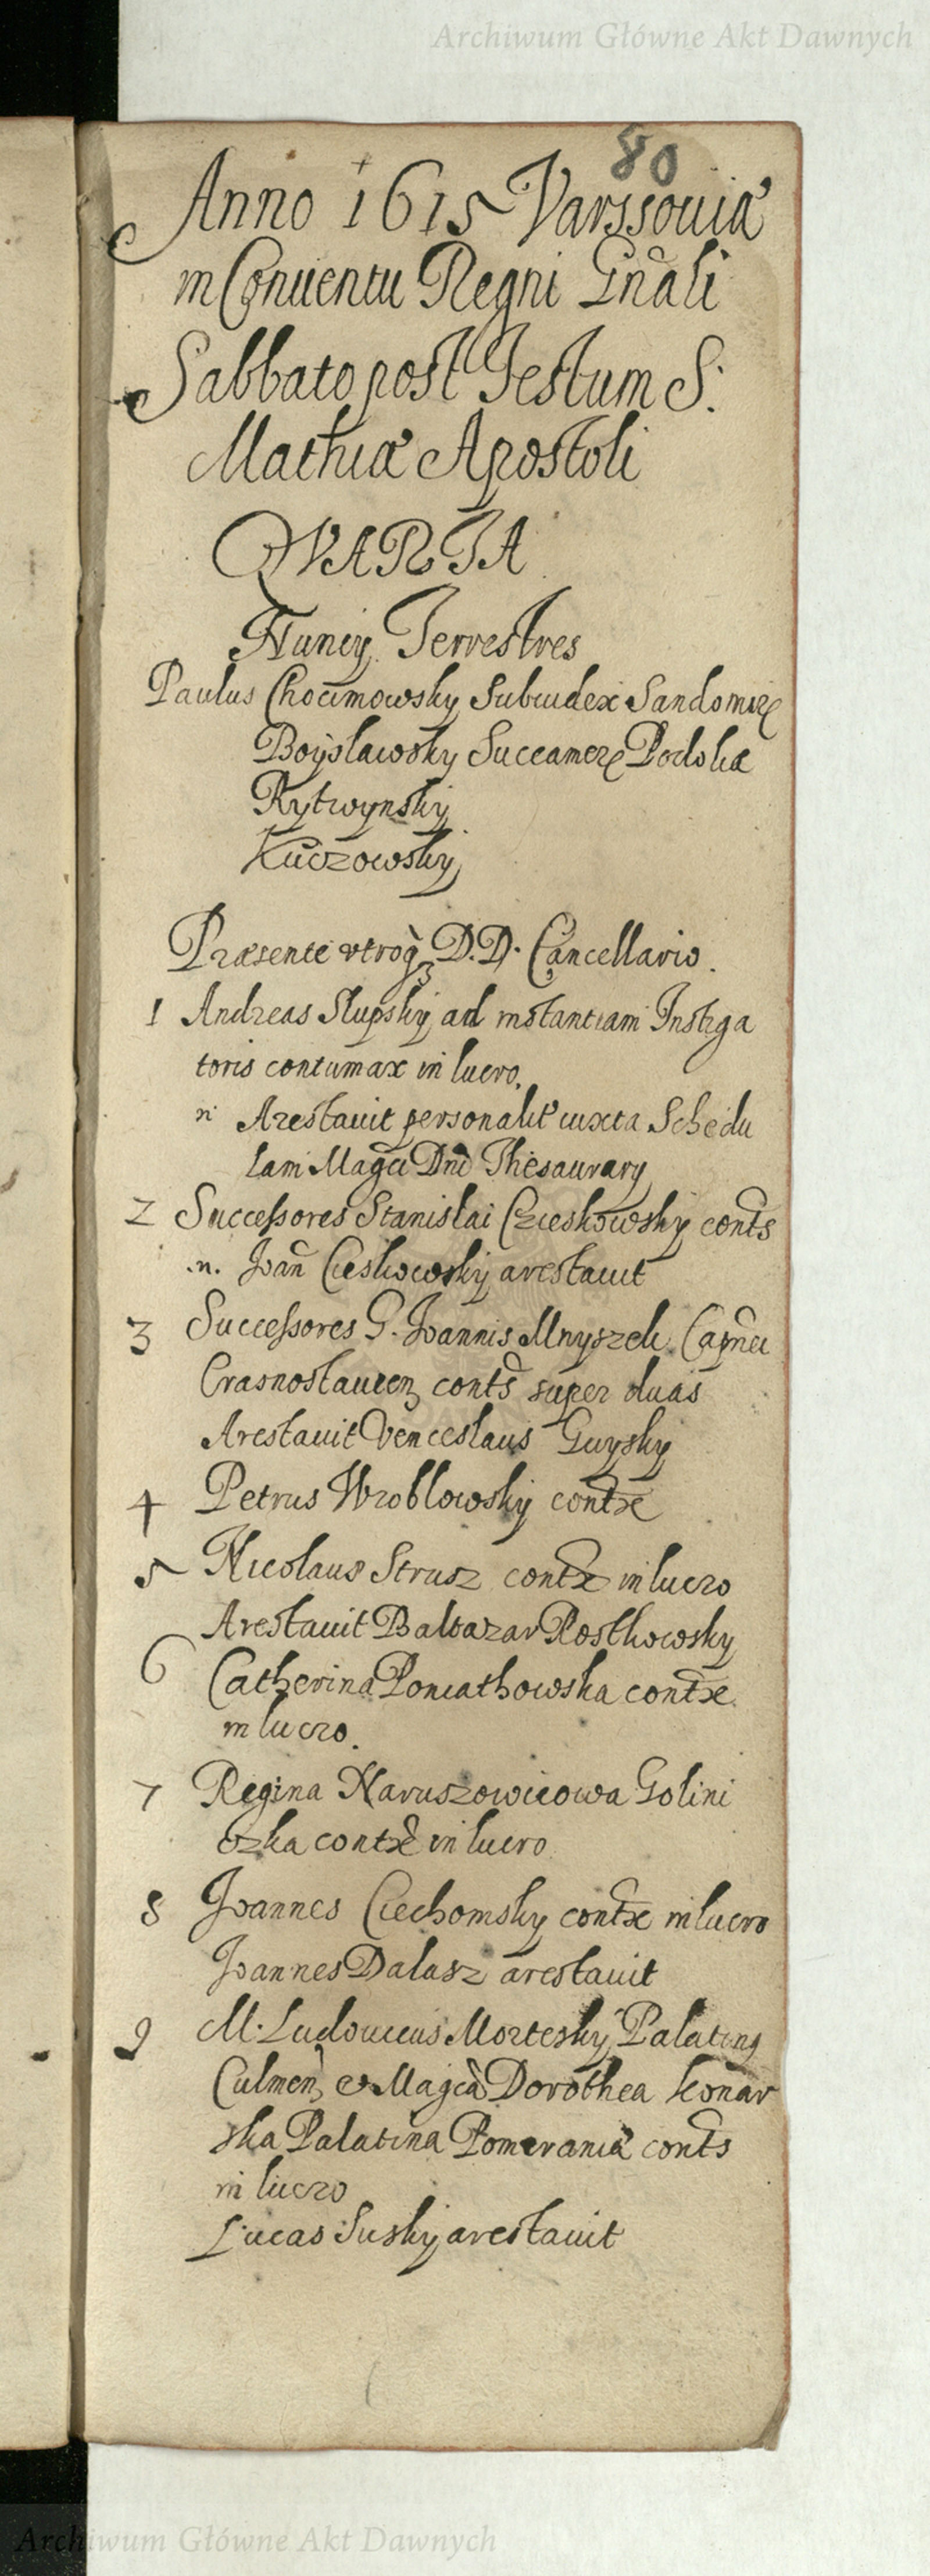 Archiwum Główne Akt Dawnych
80
Anno 1615 Varssouiæ
in Conuentu Regni Gnãli
Sabbato post Festum S:
Mathiæ Apostoli
QVARTA
Nuncij Terrestres
Paulus Chocimowsky Subiudex Sandomir
Boÿslawsky Succamer Podolia
Rytwynskij
Kuczowskij
Præsente vtroq3 D.D. Cancellario.
1 Andreas Slupskij ad instantiam Instiga
toris contumax in lucro.
n Arestauit personalit iuxta Schedu
lam Magci Dni Thesaurarij
2 Successores Stanislai Czieskowskij conts
.n. Joan Cieskowskij arestauit
3 Successores G. Joannis Mnyszek Capnei
Crasnostauien conts super duas
Arestauit Venceslaus Guyskij
4 Petrus Wroblowskij contx
5 Nicolaus Strusz contx in lucro
Arestauit Baltazar Rostkowsky
6 Catherina Poniathowska contx
in lucro.
7 Regina Naruszowicowa Golini
czka contx in lucro
8 Joannes Ciechomskij contx in lucro
Joannes Dalasz arestauit
9 M. Ludouicus Morteskij Palatinus
Culmen et Magca Dorothea Konar
ska Palatina Pomeraniæ conts
in lucro
Lucas Suskij arestauit
Archiwum Główne Akt Dawnych